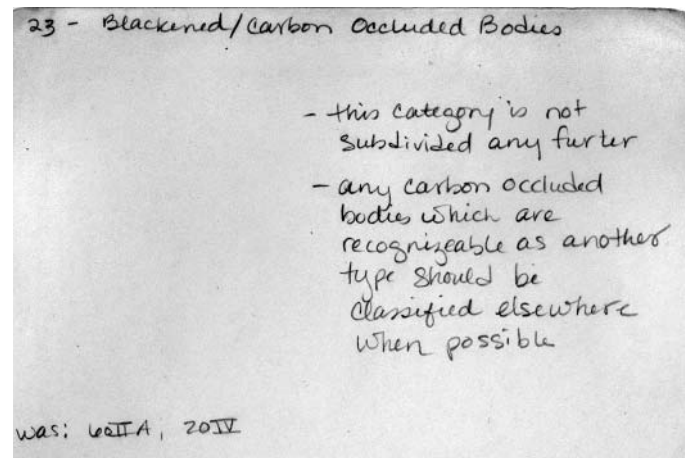 23 - Blackened/Carbon Occluded Bodies
- this category is not
subdivided any furter
- any carbon occluded
bodies which are
recognizeable as another
type should be
classified elsewhere
when possible
was: 60IIA, 20IV